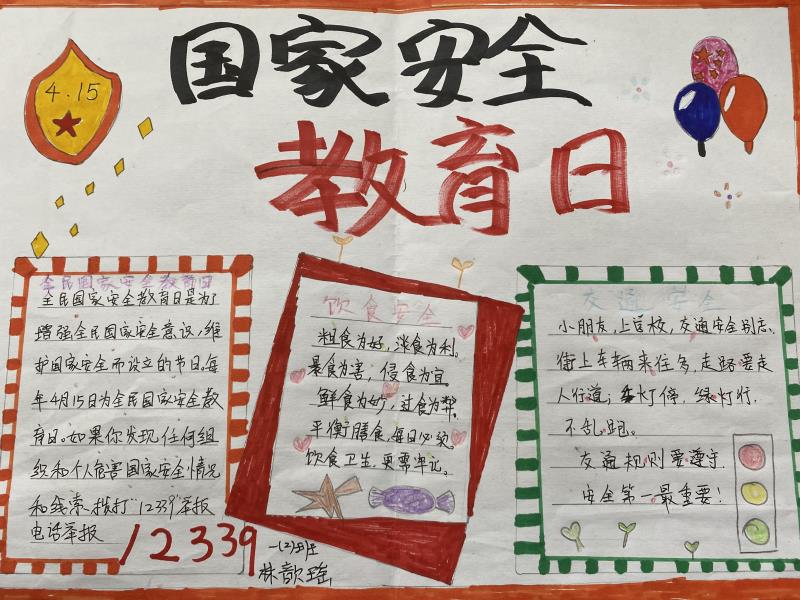 国家安全
教育日
4.15
全民国家安全教育日
全民国家安全教育日是为了
增强全民国家安全意识，维
护国家安全而设立的节日。每
年4月15日为全民国家安全教
育日。如果你发现任何组
织和个人危害国家安全情况
和线索，拨打"12339"举报
电话举报
12339
饮食安全
粗食为好，淡食为利。
暴食为害，慢食为宜
鲜食为妙，过食为弊。
平衡膳食，每日必须。
饮食卫生，更需牢记。
一(2)班
林歆瑶
交通安全
小朋友，上学校，交通安全别忘。
街上车辆来往多，走路要走
人行道；红灯停，绿灯行，
不乱跑。
交通规则要遵守
安全第一最重要！